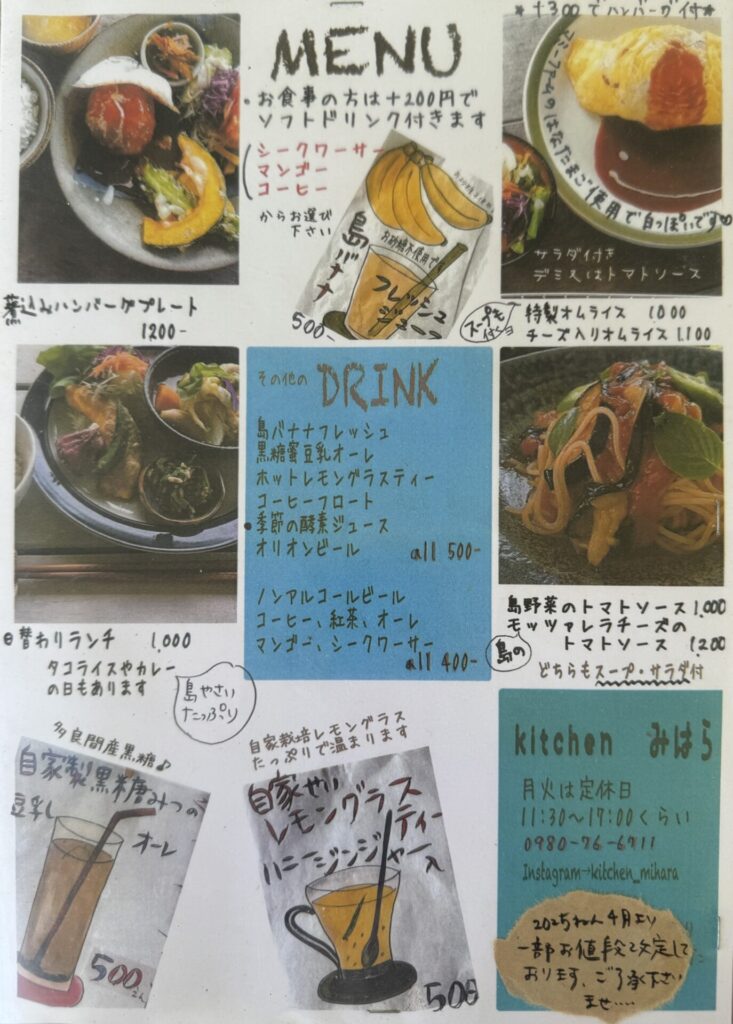 MENU
・お食事の方は+200円で
ソフトドリンク付きます
シークワーサー
マンゴー
コーヒー
からお選び
下さい
島バナナ
お砂糖不使用です
フレッシュ
ジュース
500-
*+300でハンバーグ付*
はなたまご使用で白っぽいです♡
サラダ付き
デミ又はトマトソース
煮込みハンバーグプレート
1200-
スープも
付くヨ
特製オムライス 1.000
チーズ入りオムライス 1.100
その他の DRINK
島バナナフレッシュ
黒糖蜜豆乳オーレ
ホットレモングラスティー
コーヒーフロート
・季節の酵素ジュース
オリオンビール all 500-
ノンアルコールビール
コーヒー、紅茶、オーレ
マンゴー、シークワーサー
all 400-
日替わりランチ 1.000
タコライスやカレー
の日もあります
島やさい
たっぷり
島野菜のトマトソース 1.000
モッツァレラチーズの
トマトソース 1.200
島の
どちらもスープ・サラダ付
多良間産黒糖♪
自家製黒糖みつの
豆乳
オーレ
500
自家栽培レモングラス
たっぷりで温まります
自家せい
レモングラス
ティー
ハニージンジャー入
500
kitchen みはら
月火は定休日
11:30〜17:00くらい
0980-76-6711
Instagram→kitchen_mihara
2025ねん4月より
一部お値段改定して
おります、ご了承下さい
ませ‥‥